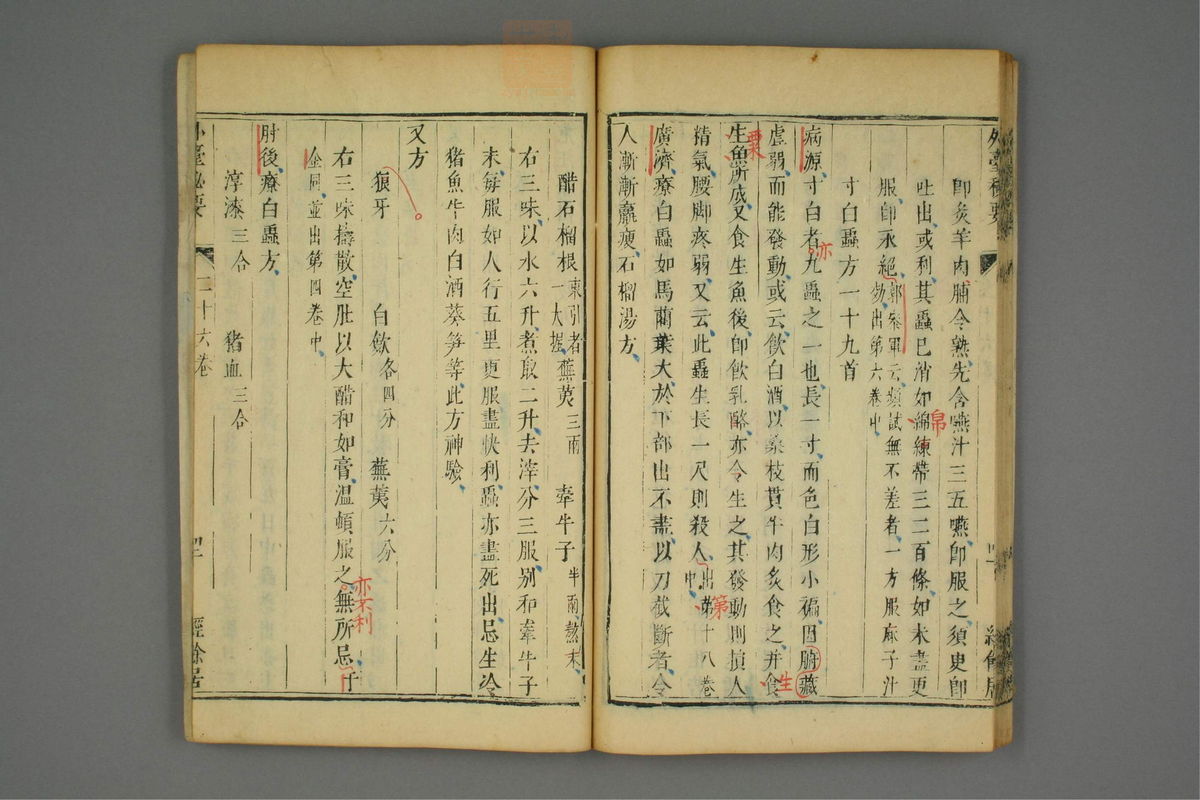 外臺秘要
卽炙羊肉脯令熟先含嚥汁三五嚥卽服之須臾卽
吐出或利其蟲已消如綿練帶三二百條如未盡更
服卽永絕郭參軍云頻試無不差者一方服麻子汁
勿出第六卷中
帛
寸白蟲方一十九首
病源寸白者九蟲之一也長一寸而色白形小褊因腑藏
亦
虛弱而能發動或云飲白酒以桑枝貫牛肉炙食之并食
生
生魚所成又食生魚後卽飲乳酪亦令生之其發動則損人
栗
精氣腰脚疼弱又云此蟲生長一尺則殺人出第十八卷
中
第
廣濟療白蟲如馬藺葉大於下部出不盡以刀截斷者令
人漸漸羸瘦石榴湯方
醋石榴根東引者一大握 蕪荑三兩 牽牛子半兩熬末
右三味以水六升煮取二升去滓分三服別和牽牛子
末每服如人行五里更服盡快利蟲亦盡死出忌生冷
猪魚牛肉白酒葵笋等此方神驗
又方
狼牙 白斂各四分 蕪荑六分
右三味擣散空肚以大醋和如膏溫頓服之無所忌千
亦不利
金同並出第四卷中
肘後療白蟲方
淳漆三合 猪血三合
外臺秘要
二十六卷
經餘居